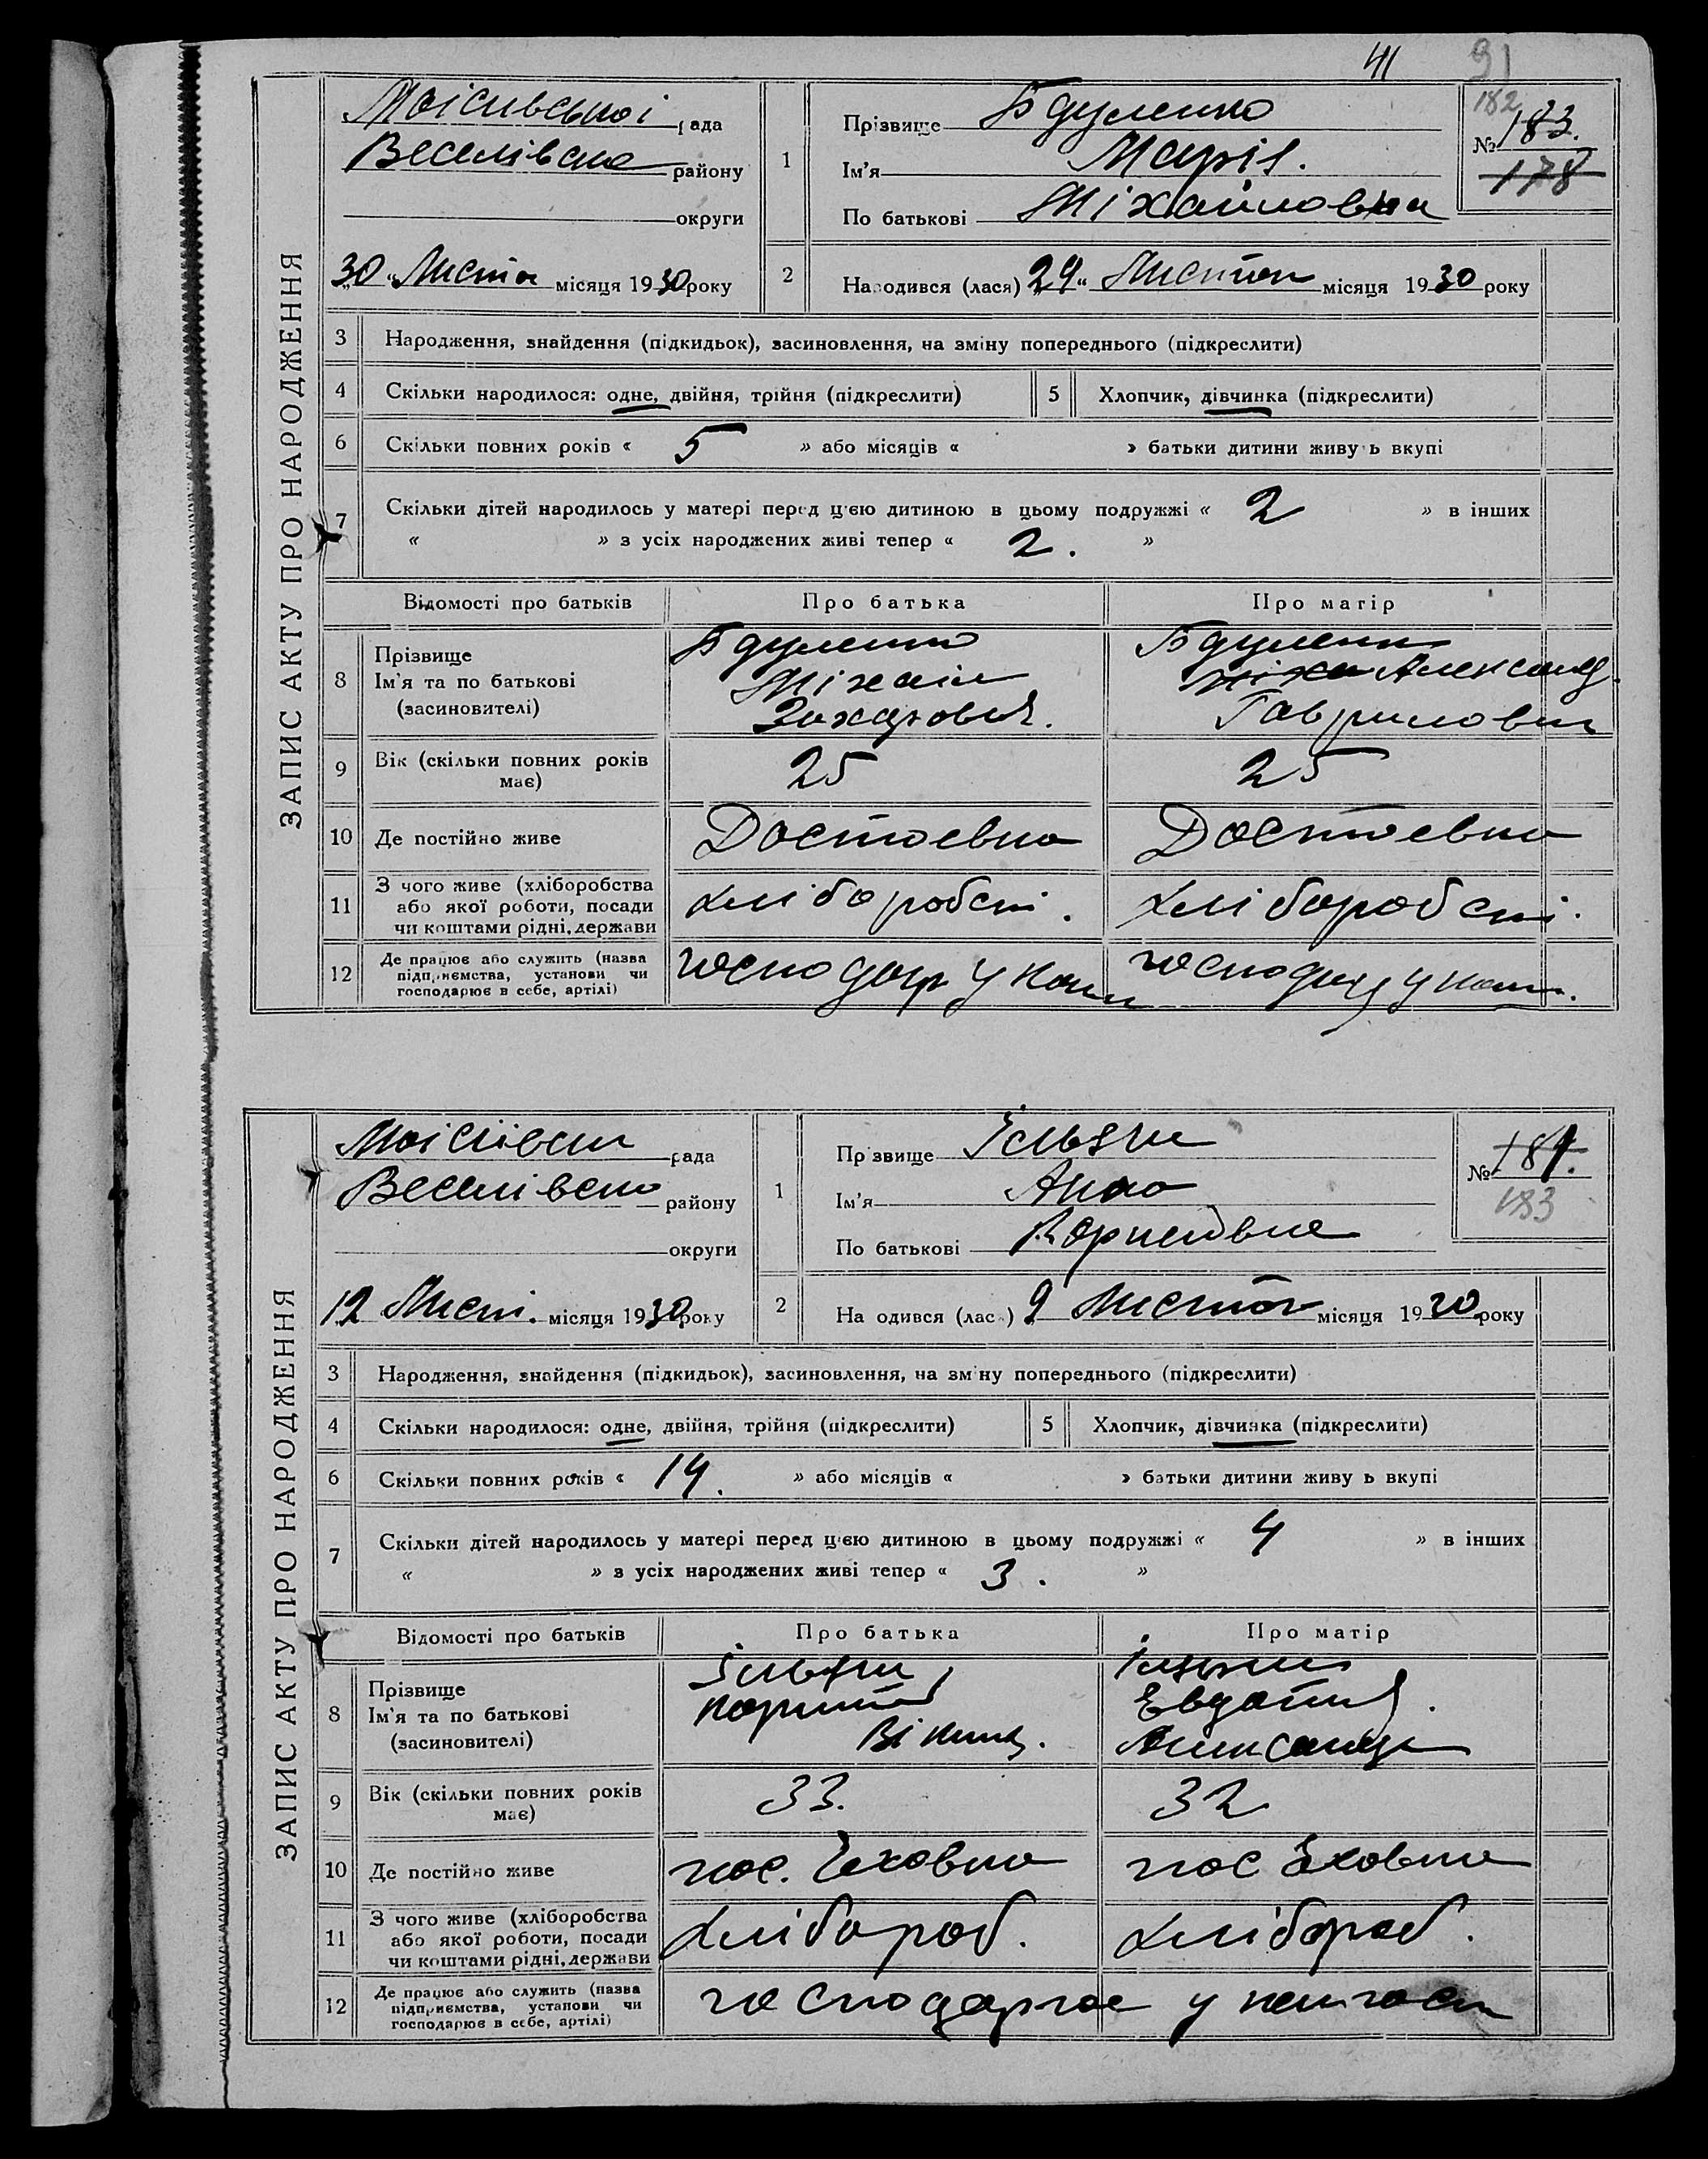 41 91
ЗАПИС АКТУ ПРО НАРОДЖЕННЯ
Моісивської рада
Веселівска району
округи
30 „ Листа місяця 1930 року
1 Прізвище Бдуленко
Ім'я Марія.
По батькові Міхайловна
182
№ 183.
178
2 Народився (лася) 29 „ Листоп місяця 1930 року
3 Народження, знайдення (підкидьок), засиновлення, на зміну попереднього (підкреслити)
4 Скільки народилося: одне, двійня, трійня (підкреслити) 5 Хлопчик, дівчинка (підкреслити)
6 Скільки повних років « 5 » або місяців « » батьки дитини живуть вкупі
7 Скільки дітей народилось у матері перед цією дитиною в цьому подружжі « 2 » в інших
« » з усіх народжених живі тепер « 2. »
Відомості про батьків Про батька Про матір
8 Прізвище
Ім'я та по батькові
(засиновителі)
Бдуленко
Міхаіл
Захарович.
Бдуленко
Александ.
Гавриловн
9 Вік (скільки повних років має) 25 25
10 Де постійно живе Достоевка Достоевка
11 З чого живе (хліборобства
або якої роботи, посади
чи коштами рідні, держави
хліборобст. хліборобст.
12 Де працює або служить (назва
підприємства, установи чи
господарює в себе, артілі)
господар у
господар у
ЗАПИС АКТУ ПРО НАРОДЖЕННЯ
Моісиівск рада
Веселівско району
округи
12 Лист. місяця 1930 року
1 Прізвище
Ім'я Анна
По батькові Корнеивна
№ 184.
183
2 Народився (лася) 9 Листоп місяця 1930 року
3 Народження, знайдення (підкидьок), засиновлення, на зміну попереднього (підкреслити)
4 Скільки народилося: одне, двійня, трійня (підкреслити) 5 Хлопчик, дівчинка (підкреслити)
6 Скільки повних років « 14. » або місяців « » батьки дитини живуть вкупі
7 Скільки дітей народилось у матері перед цією дитиною в цьому подружжі « 4 » в інших
« » з усіх народжених живі тепер « 3. »
Відомості про батьків Про батька Про матір
8 Прізвище
Ім'я та по батькові
(засиновителі)
Евдокия.
Александ
9 Вік (скільки повних років має) 33. 32
10 Де постійно живе пос. Чеховка пос Чеховка
11 З чого живе (хліборобства
або якої роботи, посади
чи коштами рідні, держави
хлібороб. хлібороб.
12 Де працює або служить (назва
підприємства, установи чи
господарює в себе, артілі)
господарюе у